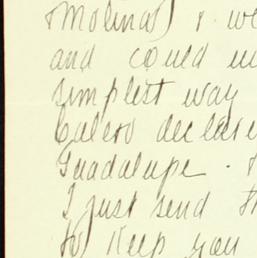 & Molina) & we
and could
simplest way
Calero declare
Guadalupe.
I just send
to keep you